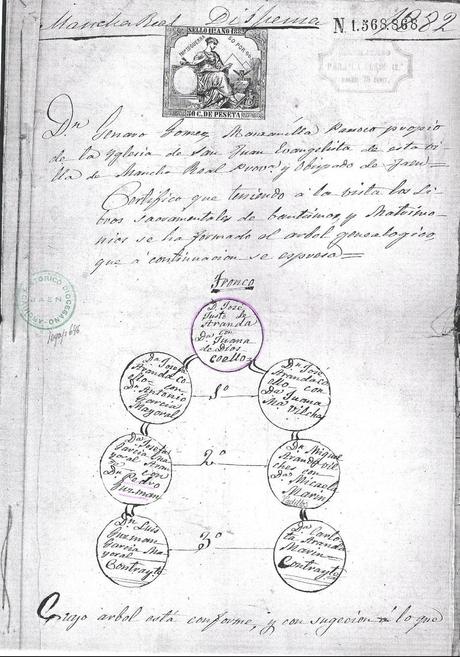 Mancha Real Dispensa 1882
N 1.568.868
SELLO 12º AÑO 1882
50 C. DE PESETA
Dn Genaro Gomez Manzanilla Parroco propio
de la Yglesia de San Juan Evangelista de esta vi-
lla de Mancha Real Provª y Obispado de Jaen
Certifico que teniendo á la vista los Li-
bros sacramentales de bautismos y Matrimo-
nios se ha formado el arbol genealogico
que á continuacion se espresa
Tronco
D. José
Justo de
Aranda
con
Dª Juana
de Dios
Coello
Dª Josefa
Aranda Co-
ello con
Dn Antonio
Garcia
Mayoral
1º
Dn José
Aranda Co-
ello con
Dª Juana
Mª Vilches
Dª Josefa
Garcia May-
oral Aran-
da con
Dn Pedro
Guzman
2º
Dn Miguel
Aranda Vil-
ches con
Dª Micaela
Marin
Dn Luis
Guzman
Garcia Ma-
yoral
Contrayte
3º
Dª Carlo-
ta Aranda
Marin
Contrayte
Cuyo arbol está conforme, y con sugecion á lo que